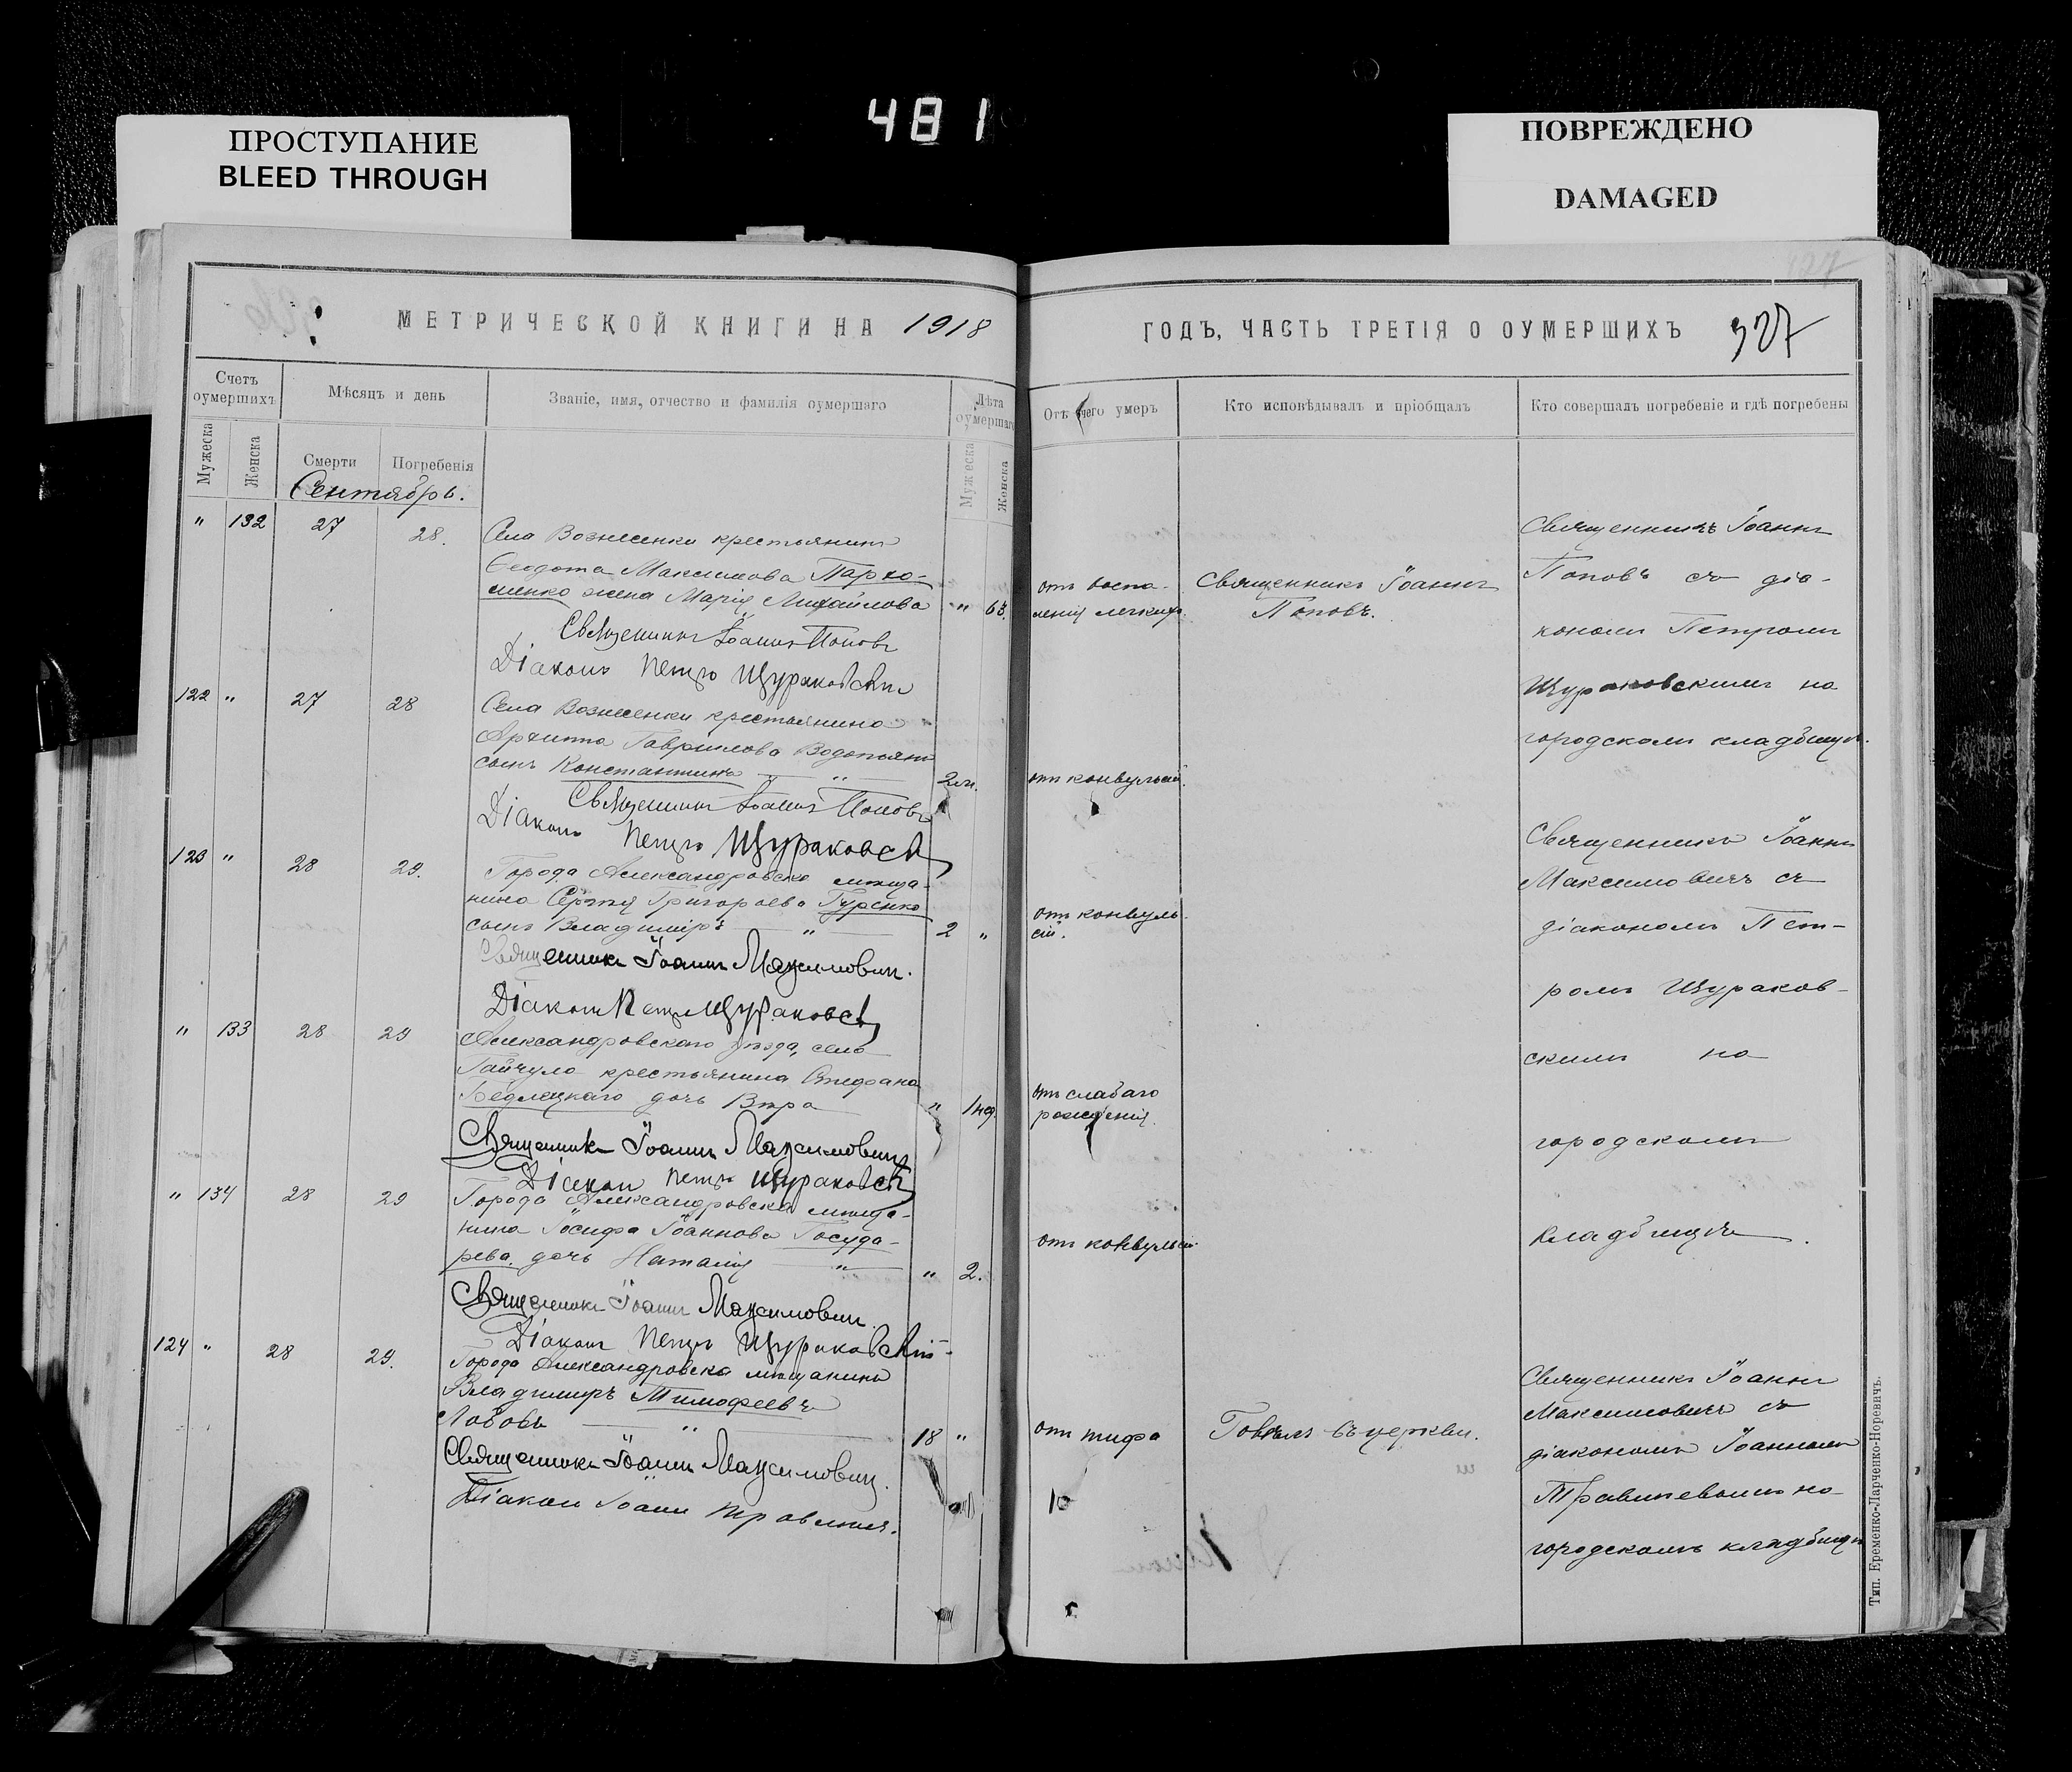 481
ПРОСТУПАНИЕ
BLEED THROUGH
ПОВРЕЖДЕНО
DAMAGED
МЕТРИЧЕСКОЙ КНИГИ НА 1918
ГОДЪ, ЧАСТЬ ТРЕТІЯ О ОУМЕРШИХЪ 327
Счетъ оумершихъ
Мѣсяцъ и день
Званіе, имя, отчество и фамилія оумершаго
Лѣта оумершаго
Отъ чего умеръ
Кто исповѣдывалъ и пріобщалъ
Кто совершалъ погребеніе и гдѣ погребены
Мужеска
Женска
Смерти
Погребенія
Мужеска
Женска
Сентябрь.
" 132 27 28.
Села Вознесенки крестьянина
Ѳеодота Максимова Пархо-
менко жена Марія Михайлова " 63.
отъ воспа-
ленія легкихъ.
Священникъ Іоаннъ
Поповъ.
Священникъ Іоаннъ
Поповъ съ діа-
кономъ Петромъ
Щураковскимъ на
городскомъ кладбищѣ.
Священникъ Іоаннъ Поповъ
Діаконъ Петръ Щураковскій
122 " 27 28
Села Вознесенки крестьянина
Архипа Гаврилова Водопьянъ
сынъ Константинъ " 2 м.
отъ конвульсій.
Священникъ Іоаннъ Поповъ
Діаконъ Петръ Щураковскій
123 " 28 29.
Города Александровска мѣща-
нина Сергѣя Григорьева Гуренко
сынъ Владиміръ " 2 "
отъ конвуль-
сій.
Священникъ Іоаннъ
Максимовичъ съ
діакономъ Пет-
ромъ Щураков-
скимъ на
городскомъ
кладбищѣ.
Священникъ Іоаннъ Максимовичъ.
Діаконъ Петръ Щураковскій
" 133 28 29
Александровскаго уѣзда, села
Гайчула крестьянина Стефана
Бедлецкаго дочь Вѣра " 1 нед.
отъ слабаго
рожденія.
Священникъ Іоаннъ Максимовичъ
Діаконъ Петръ Щураковскій
" 134 28 29
Города Александровска мѣща-
нина Іосифа Іоаннова Госуда-
рева дочь Наталія " " 2.
отъ конвульсій
Священникъ Іоаннъ Максимовичъ.
Діаконъ Петръ Щураковскій
124 " 28 29.
Города Александровска мѣщанинъ
Владимиръ Тимофеевъ
Лобовъ " 18 "
отъ тифа
Говѣлъ въ церкви.
Священникъ Іоаннъ
Максимовичъ съ
діакономъ Іоанномъ
на
городскомъ кладбищѣ
Священникъ Іоаннъ Максимовичъ.
Діаконъ Іоаннъ
Тип. Еременко-Ларченко-Норевичъ.